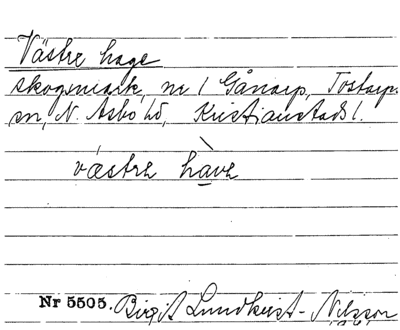 Västre hage
skogsmark, nr 1 Gånarp, Tostarps
sn, N. Åsbo hd, Kristianstads l.
västre have
Nr 5505. Birgit Lundkvist-Nilsson